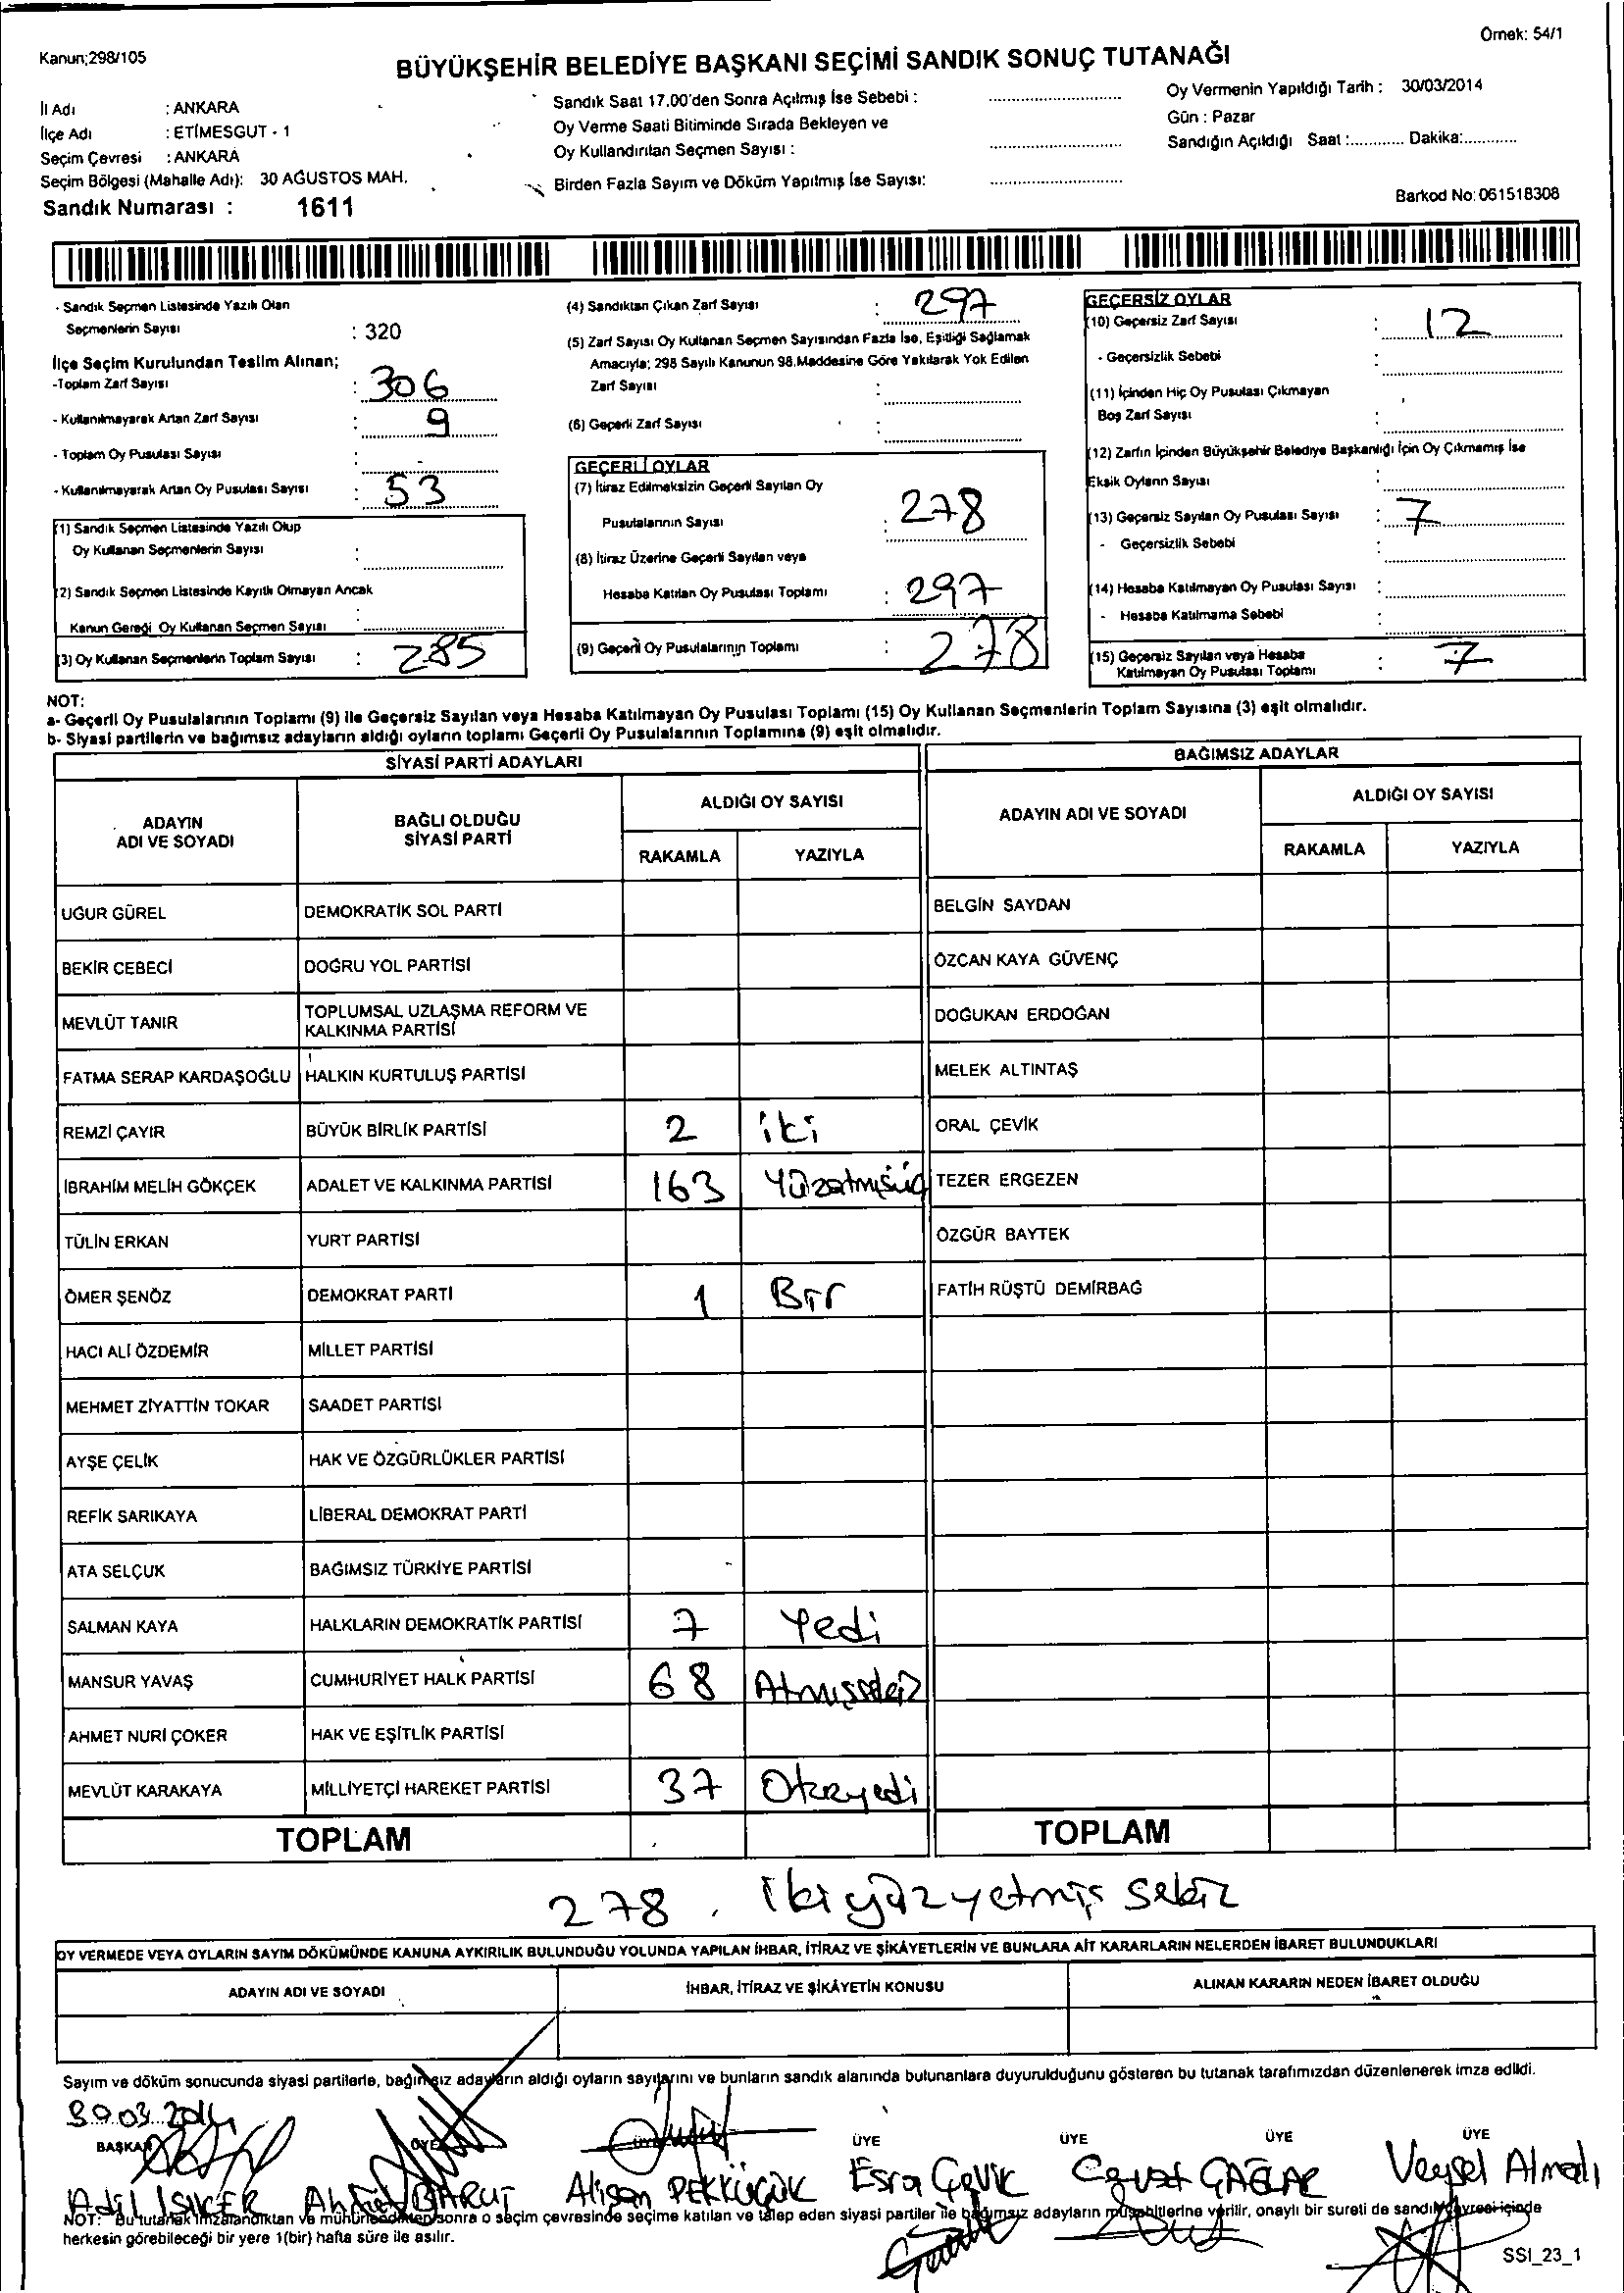 Örnek: 54/1
Kanun;298/105
BÜYÜKŞEHİR BELEDİYE BAŞKANI SEÇİMİ SANDIK SONUÇ TUTANAĞI
İl Adı : ANKARA
İlçe Adı : ETİMESGUT - 1
Seçim Çevresi : ANKARA
Seçim Bölgesi (Mahalle Adı): 30 AĞUSTOS MAH.
Sandık Numarası : 1611
Sandık Saat 17.00'den Sonra Açılmış İse Sebebi :
Oy Verme Saati Bitiminde Sırada Bekleyen ve
Oy Kullandırılan Seçmen Sayısı :
Birden Fazla Sayım ve Döküm Yapılmış İse Sayısı:
Oy Vermenin Yapıldığı Tarih : 30/03/2014
Gün : Pazar
Sandığın Açıldığı Saat :............ Dakika:.............
Barkod No: 061518308
- Sandık Seçmen Listesinde Yazılı Olan
Seçmenlerin Sayısı : 320
İlçe Seçim Kurulundan Teslim Alınan;
-Toplam Zarf Sayısı : 306
- Kullanılmayarak Artan Zarf Sayısı : 9
- Toplam Oy Pusulası Sayısı :
- Kullanılmayarak Artan Oy Pusulası Sayısı : 53
(1) Sandık Seçmen Listesinde Yazılı Olup
Oy Kullanan Seçmenlerin Sayısı :
(2) Sandık Seçmen Listesinde Kayıtlı Olmayan Ancak
Kanun Gereği Oy Kullanan Seçmen Sayısı :
(3) Oy Kullanan Seçmenlerin Toplam Sayısı : 285
(4) Sandıktan Çıkan Zarf Sayısı : 297
(5) Zarf Sayısı Oy Kullanan Seçmen Sayısından Fazla İse, Eşitliği Sağlamak
Amacıyla; 298 Sayılı Kanunun 98.Maddesine Göre Yakılarak Yok Edilen
Zarf Sayısı :
(6) Geçerli Zarf Sayısı :
GEÇERLİ OYLAR
(7) İtiraz Edilmeksizin Geçerli Sayılan Oy
Pusulalarının Sayısı : 278
(8) İtiraz Üzerine Geçerli Sayılan veya
Hesaba Katılan Oy Pusulası Toplamı : 297
(9) Geçerli Oy Pusulalarının Toplamı : 278
GEÇERSİZ OYLAR
(10) Geçersiz Zarf Sayısı : 12
- Geçersizlik Sebebi :
(11) İçinden Hiç Oy Pusulası Çıkmayan
Boş Zarf Sayısı :
(12) Zarfın İçinden Büyükşehir Belediye Başkanlığı İçin Oy Çıkmamış İse
Eksik Oyların Sayısı :
(13) Geçersiz Sayılan Oy Pusulası Sayısı : 7
- Geçersizlik Sebebi :
(14) Hesaba Katılmayan Oy Pusulası Sayısı :
- Hesaba Katılmama Sebebi :
(15) Geçersiz Sayılan veya Hesaba
Katılmayan Oy Pusulası Toplamı : 7
NOT:
a- Geçerli Oy Pusulalarının Toplamı (9) ile Geçersiz Sayılan veya Hesaba Katılmayan Oy Pusulası Toplamı (15) Oy Kullanan Seçmenlerin Toplam Sayısına (3) eşit olmalıdır.
b- Siyasi partilerin ve bağımsız adayların aldığı oyların toplamı Geçerli Oy Pusulalarının Toplamına (9) eşit olmalıdır.
SİYASİ PARTİ ADAYLARI
ADAYIN ADI VE SOYADI
BAĞLI OLDUĞU SİYASİ PARTİ
ALDIĞI OY SAYISI
RAKAMLA YAZIYLA
UĞUR GÜREL DEMOKRATİK SOL PARTİ
BEKİR CEBECİ DOĞRU YOL PARTİSİ
MEVLÜT TANIR TOPLUMSAL UZLAŞMA REFORM VE KALKINMA PARTİSİ
FATMA SERAP KARDAŞOĞLU HALKIN KURTULUŞ PARTİSİ
REMZİ ÇAYIR BÜYÜK BİRLİK PARTİSİ 2 iki
İBRAHİM MELİH GÖKÇEK ADALET VE KALKINMA PARTİSİ 163 Yüzatmışüç
TÜLİN ERKAN YURT PARTİSİ
ÖMER ŞENÖZ DEMOKRAT PARTİ 1 Bir
HACI ALİ ÖZDEMİR MİLLET PARTİSİ
MEHMET ZİYATTİN TOKAR SAADET PARTİSİ
AYŞE ÇELİK HAK VE ÖZGÜRLÜKLER PARTİSİ
REFİK SARIKAYA LİBERAL DEMOKRAT PARTİ
ATA SELÇUK BAĞIMSIZ TÜRKİYE PARTİSİ
SALMAN KAYA HALKLARIN DEMOKRATİK PARTİSİ 7 Yedi
MANSUR YAVAŞ CUMHURİYET HALK PARTİSİ 68 Atmışsekiz
AHMET NURİ ÇOKER HAK VE EŞİTLİK PARTİSİ
MEVLÜT KARAKAYA MİLLİYETÇİ HAREKET PARTİSİ 37 Otuzyedi
TOPLAM
BAĞIMSIZ ADAYLAR
ADAYIN ADI VE SOYADI
ALDIĞI OY SAYISI
RAKAMLA YAZIYLA
BELGİN SAYDAN
ÖZCAN KAYA GÜVENÇ
DOĞUKAN ERDOĞAN
MELEK ALTINTAŞ
ORAL ÇEVİK
TEZER ERGEZEN
ÖZGÜR BAYTEK
FATİH RÜŞTÜ DEMİRBAĞ
TOPLAM
278 . ikiyüzyetmiş sekiz
OY VERMEDE VEYA OYLARIN SAYIM DÖKÜMÜNDE KANUNA AYKIRILIK BULUNDUĞU YOLUNDA YAPILAN İHBAR, İTİRAZ VE ŞİKAYETLERİN VE BUNLARA AİT KARARLARIN NELERDEN İBARET BULUNDUKLARI
ADAYIN ADI VE SOYADI
İHBAR, İTİRAZ VE ŞİKAYETİN KONUSU
ALINAN KARARIN NEDEN İBARET OLDUĞU
Sayım ve döküm sonucunda siyasi partilerle, bağımsız adayların aldığı oyların sayılarını ve bunların sandık alanında bulunanlara duyurulduğunu gösteren bu tutanak tarafımızdan düzenlenerek imza edildi.
30.03.2014
BAŞKAN ÜYE ÜYE ÜYE ÜYE ÜYE ÜYE
Adil IŞIKER Ahmet BARUT Alişan PEKKÜÇÜK Esra Çevik Cevat ÇAĞLAR Veysel Almalı
NOT: Bu tutanak imzalandıktan ve mühürlendikten sonra o seçim çevresinde seçime katılan ve talep eden siyasi partiler ile bağımsız adayların müşahitlerine verilir, onaylı bir sureti de sandık çevresi içinde
herkesin görebileceği bir yere 1(bir) hafta süre ile asılır.
SSI_23_1